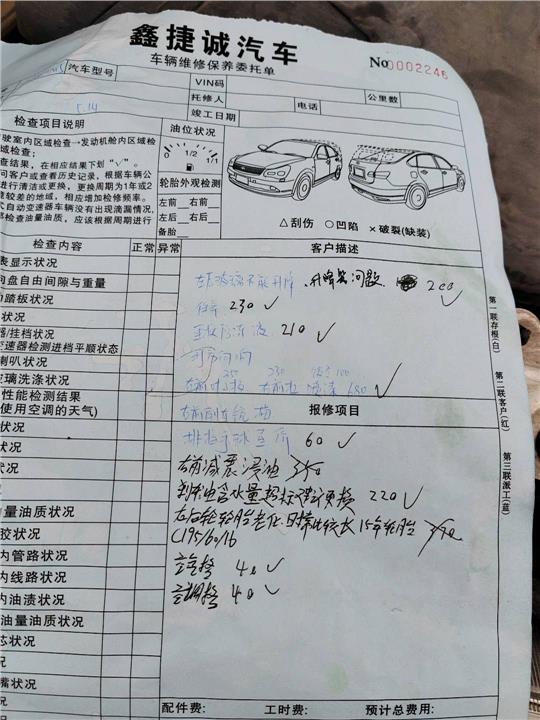 鑫捷诚汽车
车辆维修保养委托单
No 0002246
汽车型号
VIN码
托修人
电话
公里数
竣工日期
5.14
检查项目说明
油位状况
驶室内区域检查→发动机舱内区域检
域检查;
查结果,在相应结果下划"√"。
问客户或查看历史记录,根据车辆公
进行清洁或更换,更换周期为1年或2
度较差的地域,相应增加检修频率。
式自动变速器车辆没有出现滴漏情况,
检查油量油质,应该根据周期进行
1/2
1/1
轮胎外观检测
左前 右前
左后 右后
备胎
△刮伤 ○凹陷 ×破裂(缺装)
检查内容 正常 异常
客户描述
表显示状况
向盘自由间隙与重量
踏板状况
状况
器/挂档状况
变速器检测进档平顺状态
喇叭状况
玻璃洗涤状况
性能检测结果
使用空调的天气)
状况
状况
状况
量油质状况
胶状况
内管路状况
内线路状况
内油渍状况
油量油质状况
芯状况
况
嘴状况
升降器问题 200 √
230 √
防冻液 210 √
25 230
680 √
报修项目
60 √
右前减震漏油
刹车油含水量超标建议更换 220 √
左后轮轮胎老化日期比较长 15年轮胎
(195/60/16
40 √
40 √
第一联存根(白)
第二联客户(红)
第三联派工(蓝)
配件费: 工时费: 预计总费用: